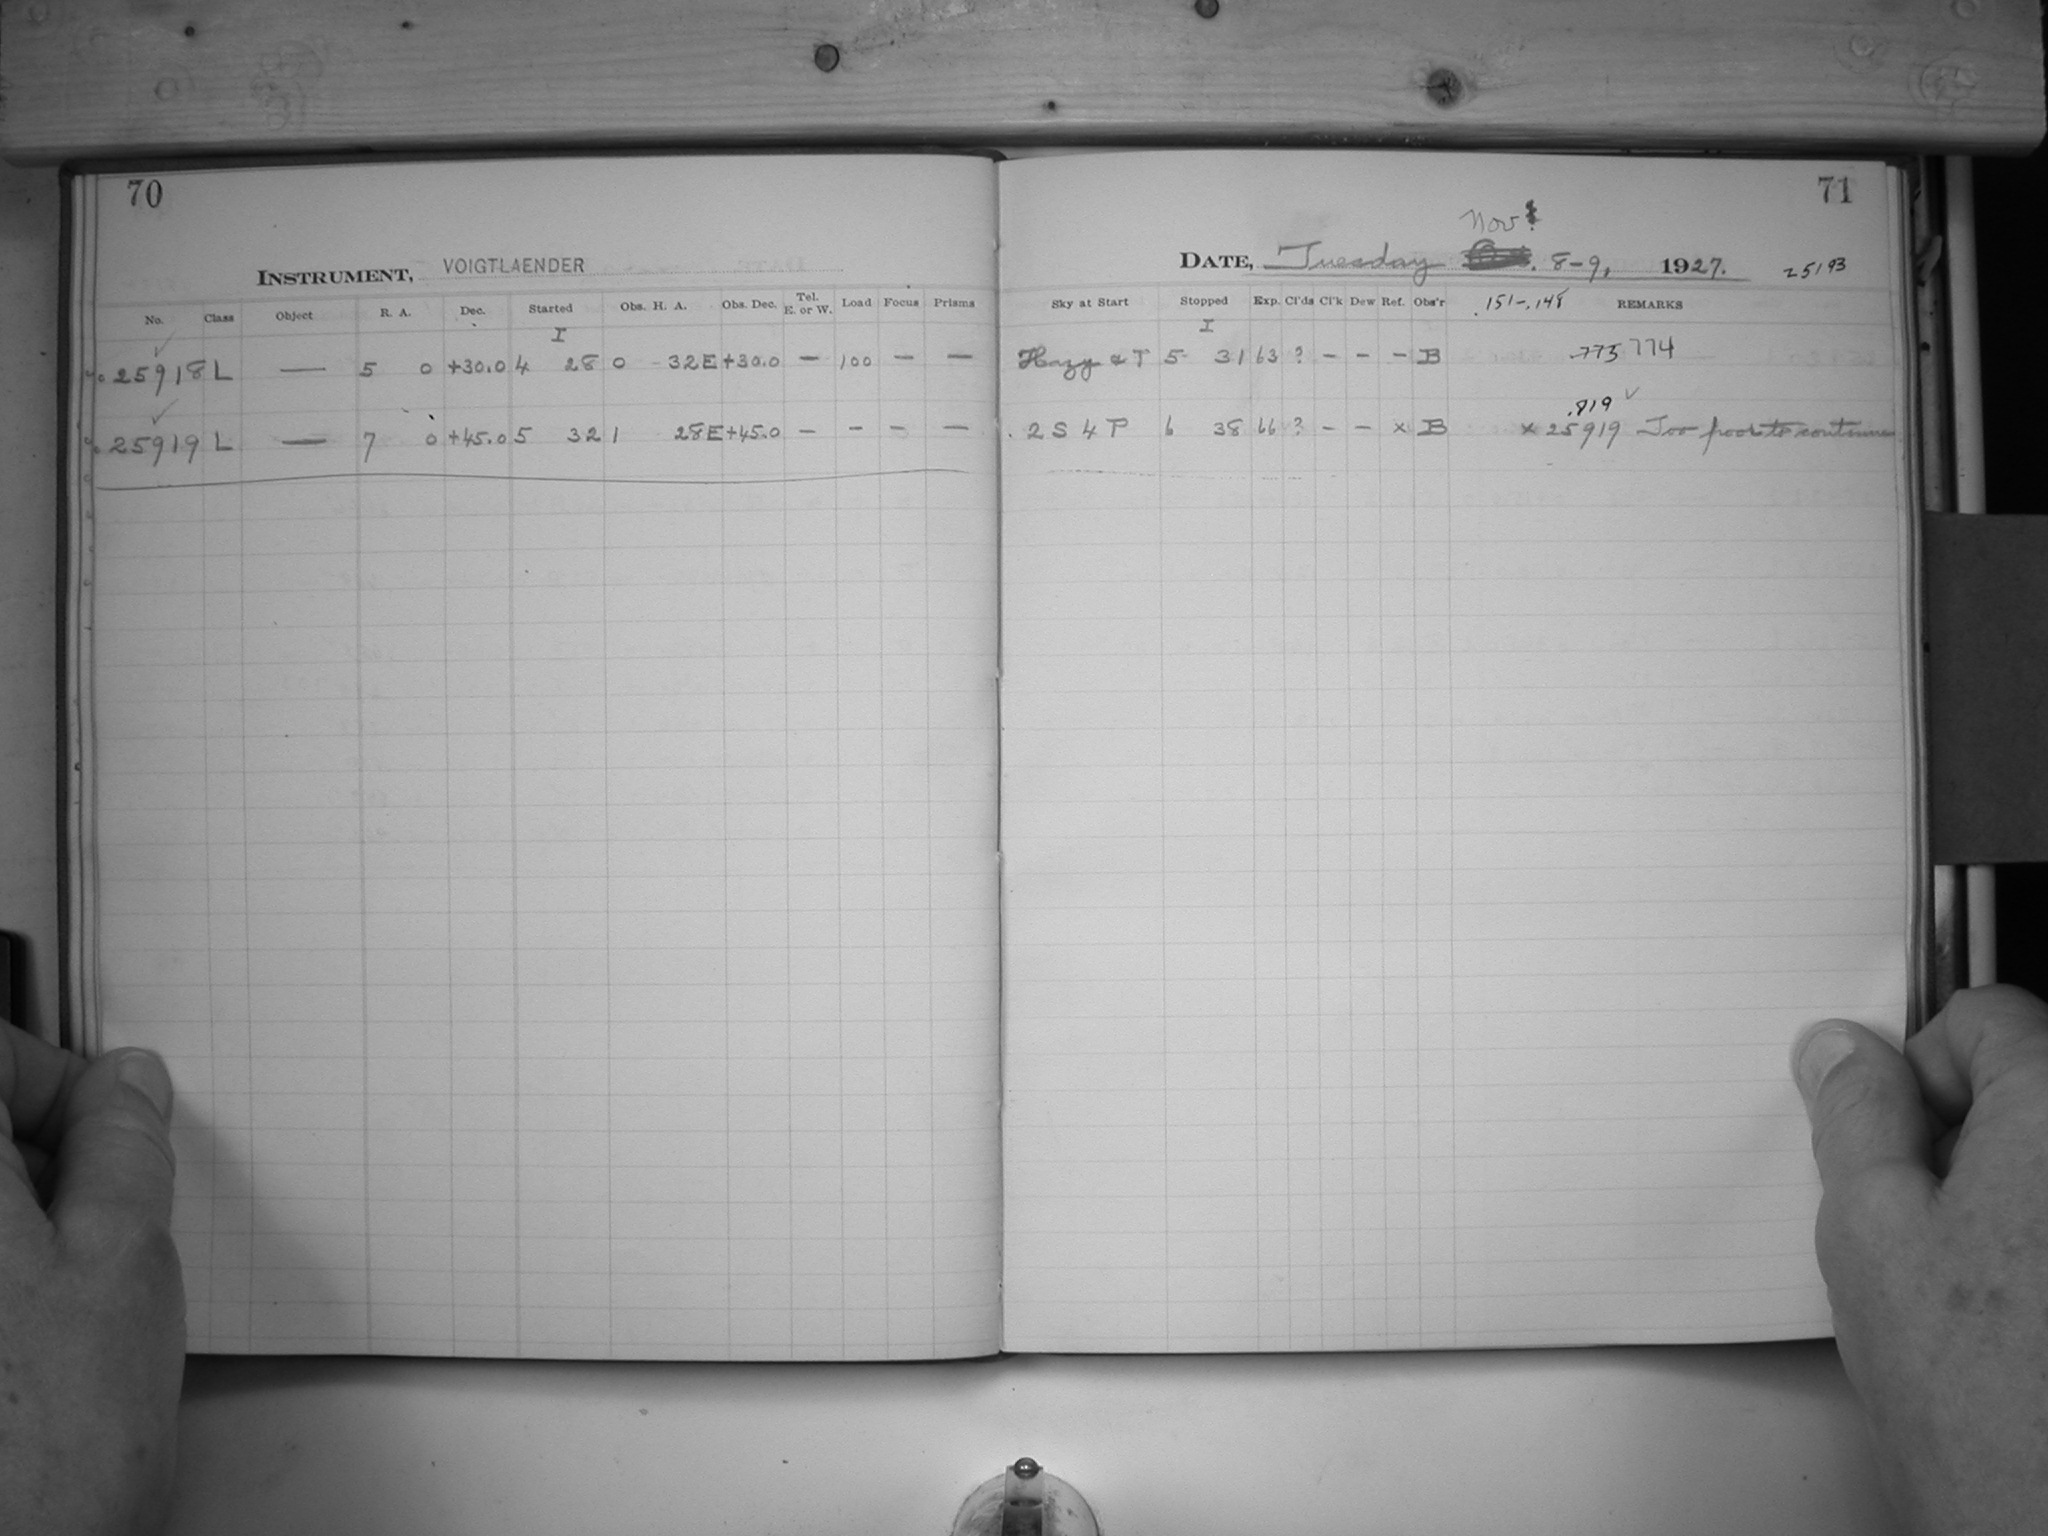 70
INSTRUMENT, VOIGTLAENDER
No. Class Object R. A. Dec. Started Obs. H. A. Obs. Dec. Tel. E. or W. Load Focus Prisms
I
25918 L — 5 0 +30.0 4 28 0 32E +30.0 — 100 — —
25919 L — 7 0 +45.0 5 32 1 28E +45.0 — — — —
71
Nov.
DATE, Tuesday 8-9, 1927. 25193
Sky at Start Stopped Exp. Cl'ds Cl'k Dew Ref. Obs'r .151-.148 REMARKS
I
Hazy & T 5 31 63 ? — — — B 773 774
.819
2 S 4 P 6 38 66 ? — — x B x 25919 Too poor to continue